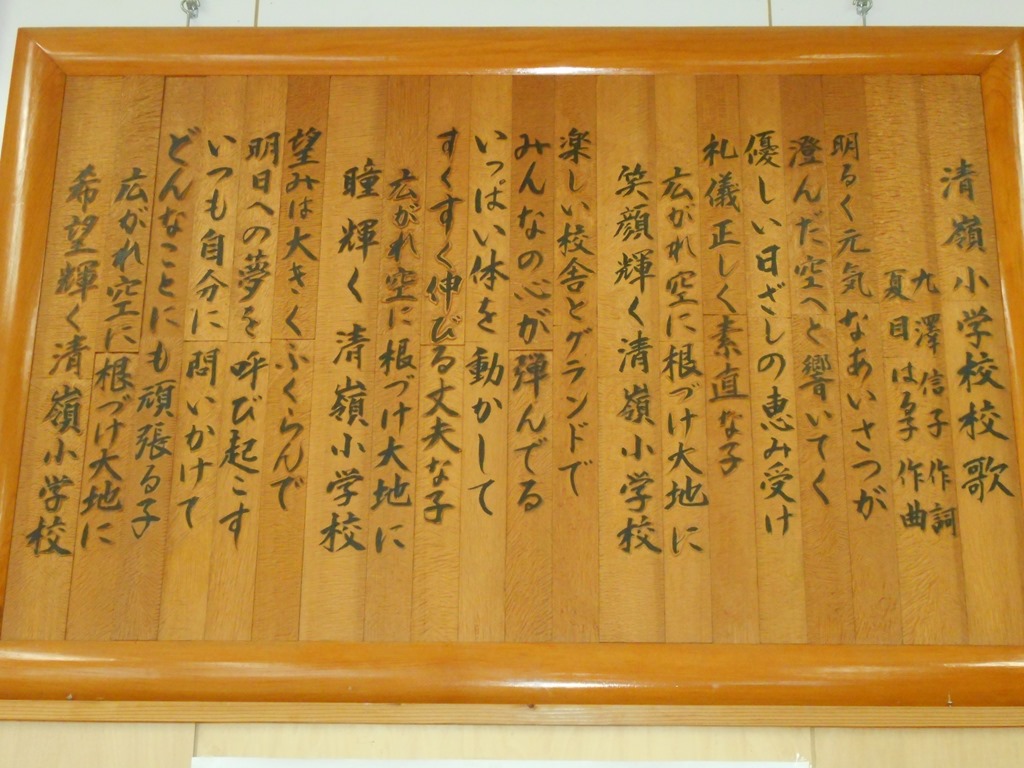 清嶺小学校校歌
九澤信子 作詞
夏目はる子 作曲
明るく元気なあいさつが
澄んだ空へと響いてく
優しい日ざしの恵み受け
礼儀正しく素直な子
広がれ空に根づけ大地に
笑顔輝く清嶺小学校
楽しい校舎とグランドで
みんなの心が弾んでる
いっぱい体を動かして
すくすく伸びる丈夫な子
広がれ空に根づけ大地に
瞳輝く 清嶺小学校
望みは大きくふくらんで
明日への夢を呼び起こす
いつも自分に問いかけて
どんなことにも頑張る子
広がれ空に根づけ大地に
希望輝く清嶺小学校